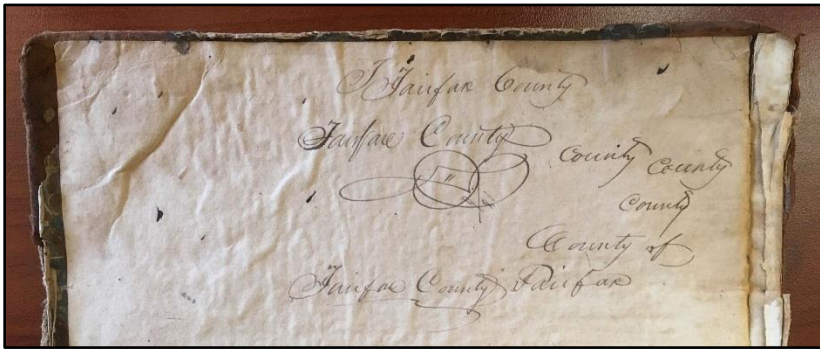 F Fairfax County
Fairfax County
County County
County
County of
Fairfax County Fairfax